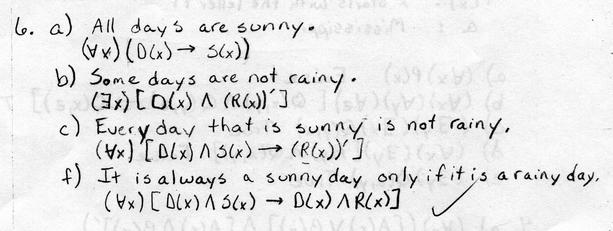 6. a) All days are sunny.
(∀x)(D(x) → S(x))
b) Some days are not rainy.
(∃x)[D(x) ∧ (R(x))′]
c) Every day that is sunny is not rainy.
(∀x)[D(x) ∧ S(x) → (R(x))′]
f) It is always a sunny day only if it is a rainy day.
(∀x)[D(x) ∧ S(x) → D(x) ∧ R(x)] ✓